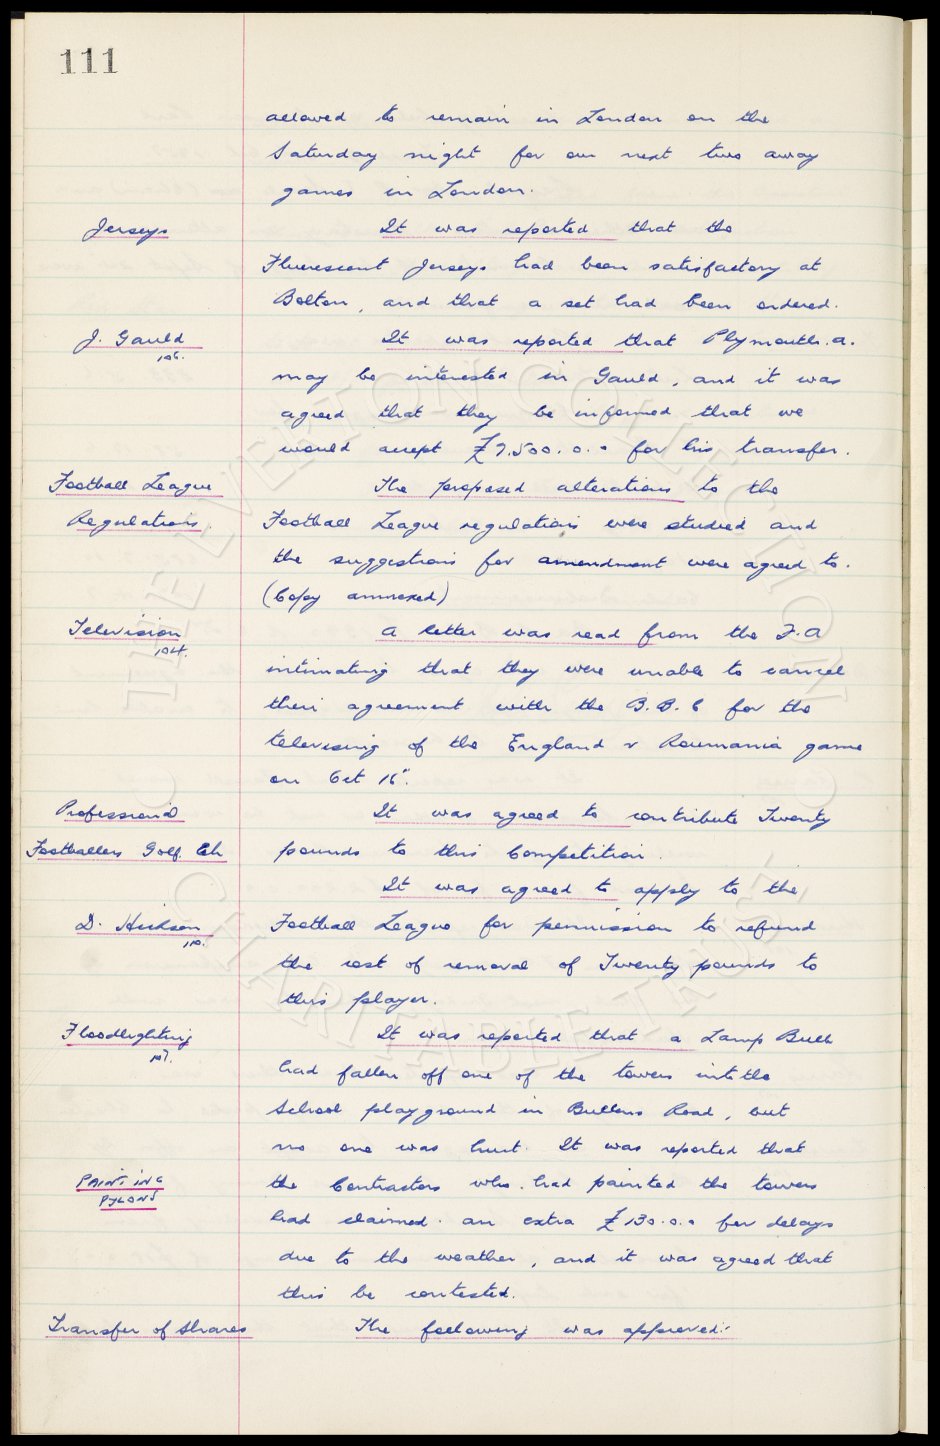 111
allowed to remain in London on the
Saturday night for our next two away
games in London.
Jerseys
It was reported that the
Fluerescent Jerseys had been satisfactory at
Bolton, and that a set had been ordered.
J. Gauld
106.
It was reported that Plymouth. A.
may be interested in Gauld, and it was
agreed that they be informed that we
would accept £7,500.0.0 for his transfer.
Football League
Regulations.
The proposed alterations to the
Football League regulations were studied and
the suggestions for amendment were agreed to.
(Copy annexed)
Television
104.
A letter was read from the F.A
intimating that they were unable to cancel
their agreement with the B.B.C for the
televising of the England v Roumania game
on Oct 16".
Professional
Footballers Golf Ch
It was agreed to contribute Twenty
pounds to this Competition.
It was agreed to apply to the
D. Hickson
110.
Football League for permission to refund
the cost of removal of Twenty pounds to
this player.
Floodlighting
107.
It was reported that a Lamp Bulb
had fallen off one of the towers into the
School playground in Bullens Road, but
no one was hurt. It was reported that
PAINTING
PYLONS
the Contractors who had painted the towers
had claimed an extra £130.0.0 for delays
due to the weather, and it was agreed that
this be contested.
Transfer of Shares
The following was approved:-
THE EVERTON COLLECTION
CHARITABLE TRUST